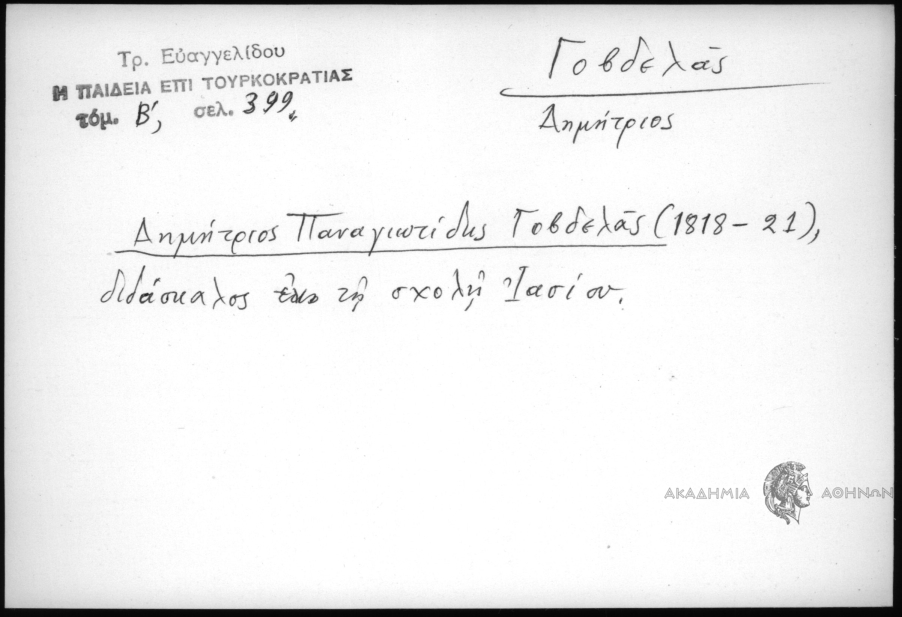 Τρ. Εὐαγγελίδου
Η ΠΑΙΔΕΙΑ ΕΠΙ ΤΟΥΡΚΟΚΡΑΤΙΑΣ
τόμ. Β΄, σελ. 399.
Γοβδελᾶς
Δημήτριος
Δημήτριος Παναγιωτίδης Γοβδελᾶς (1818 - 21),
διδάσκαλος τῇ σχολῇ Ἰασίου.
ΑΚΑΔΗΜΙΑ ΑΘΗΝΩΝ